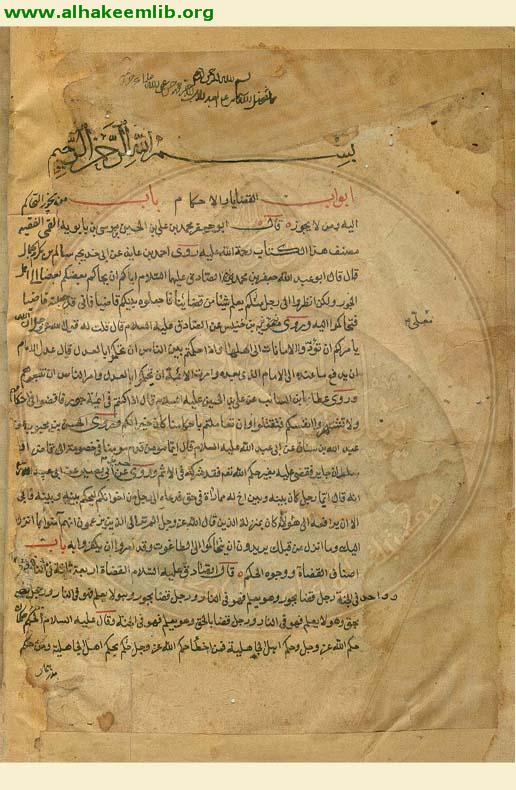 www.alhakeemlib.org
بسم الله الرحمن الرحيم
بسم الله الرحمن الرحيم
ابواب القضايا والاحكام باب من يجوز التحاكم
اليه ومن لا يجوز قال ابو جعفر محمد بن علي بن الحسين بن موسى بن بابويه القمي الفقيه
مصنف هذا الكتاب رحمة الله عليه روى احمد بن عايذ عن ابي خديجه سالم بن مكرم الجمال
قال قال ابو عبد الله جعفر بن محمد الصادق عليهما السلام اياكم ان يحاكم بعضكم بعضا الى اهل
الجور ولكن انظروا الى رجل منكم يعلم شيئا من قضايانا فاجعلوه بينكم قاضيا فاني قد جعلته قاضيا
فتحاكموا اليه وروى بن خنيس عن الصادق عليه السلام قال قلت له قول الله عز وجل ان الله
معلى
يامركم ان تؤدوا الامانات الى اهلها واذا حكمتم بين الناس ان تحكموا بالعدل قال عدل الامام
ان يدفع ما عنده الى الامام الذي بعده وامرت الائمة ان يحكموا بالعدل وامر الناس ان يتبعوهم
وروى عطاء بن السايب عن علي بن الحسين عليه السلام قال اذا كنتم في ائمة جور فاقضوا في احكامهم
ولا تشهروا انفسكم فتقتلوا وان تعاملتم باحكامنا كان خيرا لكم وروى الحسن بن محبوب عن
عبد الله بن سنان عن ابي عبد الله عليه السلام قال ايما مؤمن قدم مؤمنا في خصومة الى قاض او
سلطان جاير فقضى عليه بغير حكم الله فقد شركه في الاثم وروى عن ابي بصير عن ابي عبد الله
انه قال ايما رجل كان بينه وبين اخ له مماراة في حق فدعاه الى رجل من اخوانكم ليحكم بينه وبينه فابى
الا ان يرافعه الى هؤلاء كان بمنزلة الذين قال الله عز وجل الم تر الى الذين يزعمون انهم آمنوا بما انزل
اليك وما انزل من قبلك يريدون ان يتحاكموا الى الطاغوت وقد امروا ان يكفروا به باب
اصناف القضاة ووجوه الحكم قال الصادق عليه السلام القضاة اربعة ثلثة في النار
وواحد في الجنة رجل قضا بجور وهو يعلم فهو في النار ورجل قضا بجور وهو لا يعلم فهو في النار ورجل قضا
بحق وهو لا يعلم فهو في النار ورجل قضا بالحق وهو يعلم فهو في الجنة وقال عليه السلام الحكم حكمان
حكم الله عز وجل وحكم اهل الجاهلية فمن اخطأ حكم الله عز وجل حكم بحكم اهل الجاهلية ومن حكم